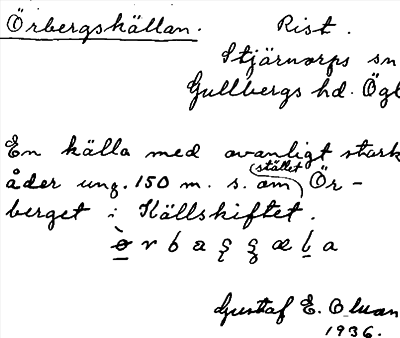 Örbergskällan. Rist.
Stjärnorps sn
Gullbergs hd. Ögl
En källa med ovanligt stark
åder ung. 150 m. s. om stället Ör-
berget i Källskiftet.
Gustaf E. 
1936.